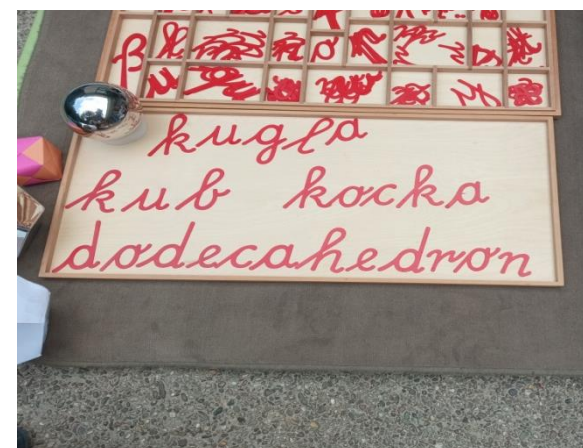 kugla
kub kocka
dodecahedron